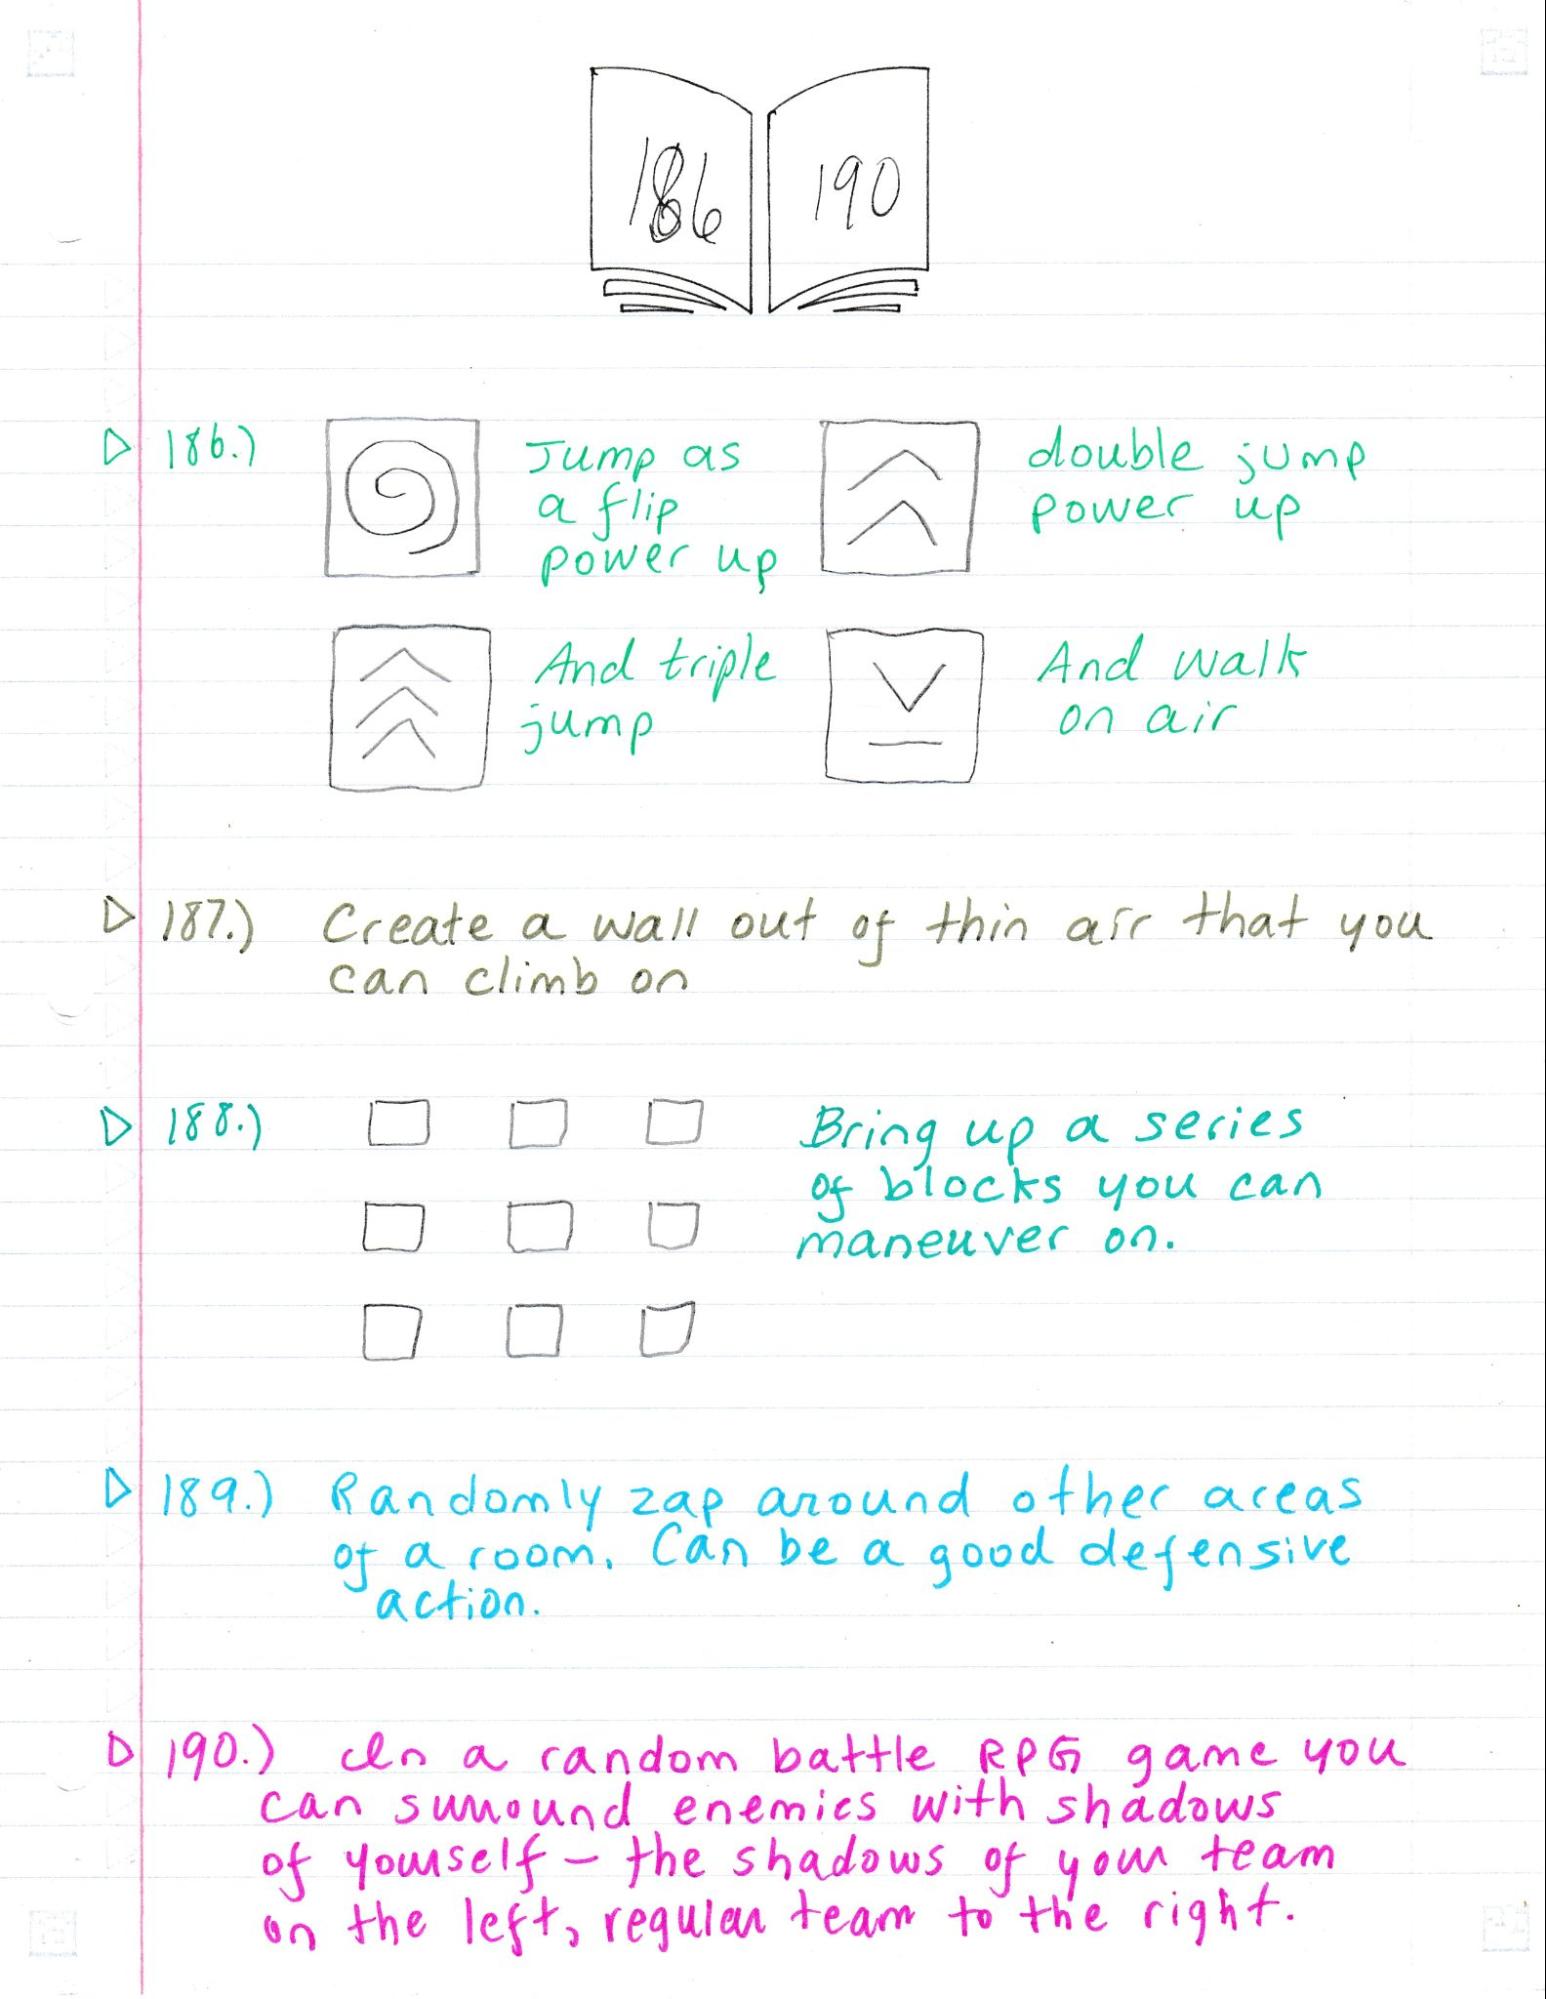 186 190
186.) Jump as
a flip
power up
double jump
power up
And triple
jump
And walk
on air
187.) Create a wall out of thin air that you
can climb on
188.) Bring up a series
of blocks you can
maneuver on.
189.) Randomly zap around other areas
of a room. Can be a good defensive
action.
190.) In a random battle RPG game you
can surround enemies with shadows
of yourself – the shadows of your team
on the left, regular team to the right.